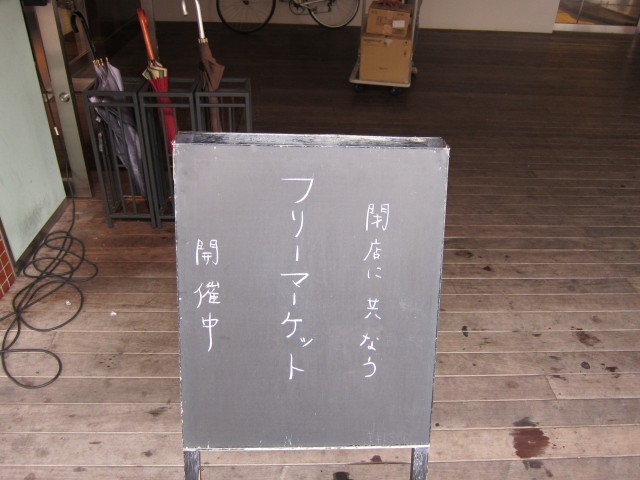 閉店に共なう
フリーマーケット
開催中